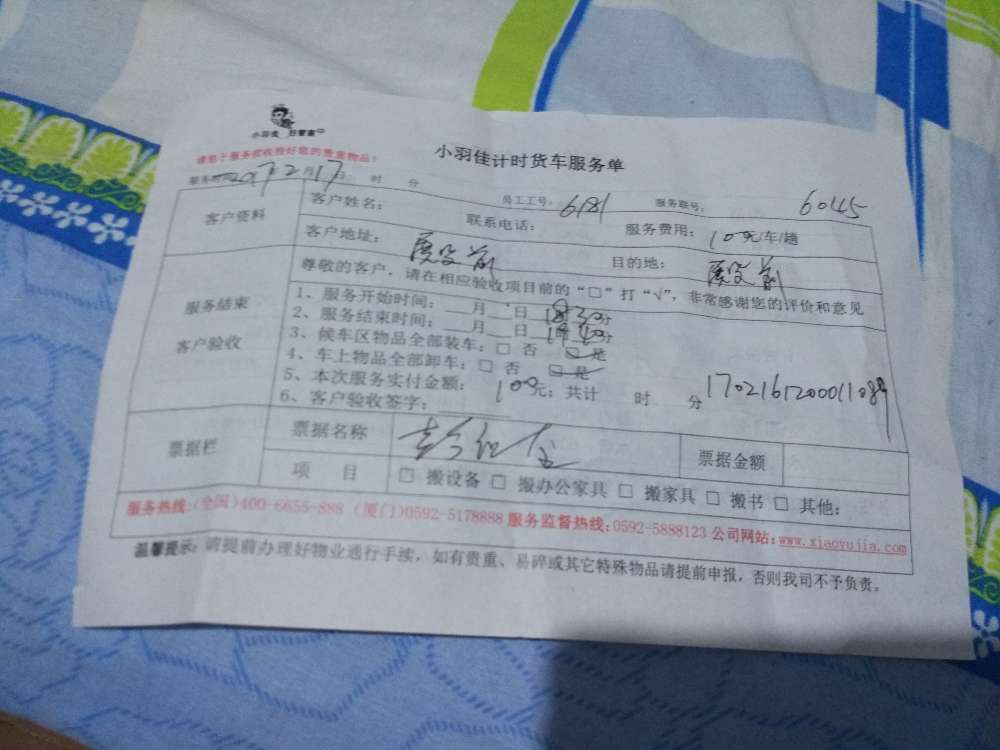 小羽佳 好管家
小羽佳计时货车服务单
请您于服务前收捡好您的贵重物品!
服务时间2017年2月17日 时 分 员工工号: 6181 服务联号: 6045
客户资料 客户姓名: 联系电话: 服务费用: 100元/车/趟
客户地址: 目的地:
服务结束 客户验收
尊敬的客户,请在相应验收项目前的“□”打“√”,非常感谢您的评价和意见
1、服务开始时间: 月 日 分
2、服务结束时间: 月 日 分
3、候车区物品全部装车: □ 否 □是
4、车上物品全部卸车: □ 否 □是
5、本次服务实付金额: 100元; 共计 时 分 170216120001108
6、客户验收签字:
票据栏 票据名称 票据金额
项 目 □ 搬设备 □ 搬办公家具 □ 搬家具 □ 搬书 □ 其他:
服务热线:(全国)400-6655-888 (厦门)0592-5178888 服务监督热线:0592-5888123 公司网站:www.xiaoyujia.com
温馨提示: 请提前办理好物业通行手续,如有贵重、易碎或其它特殊物品请提前申报,否则我司不予负责。